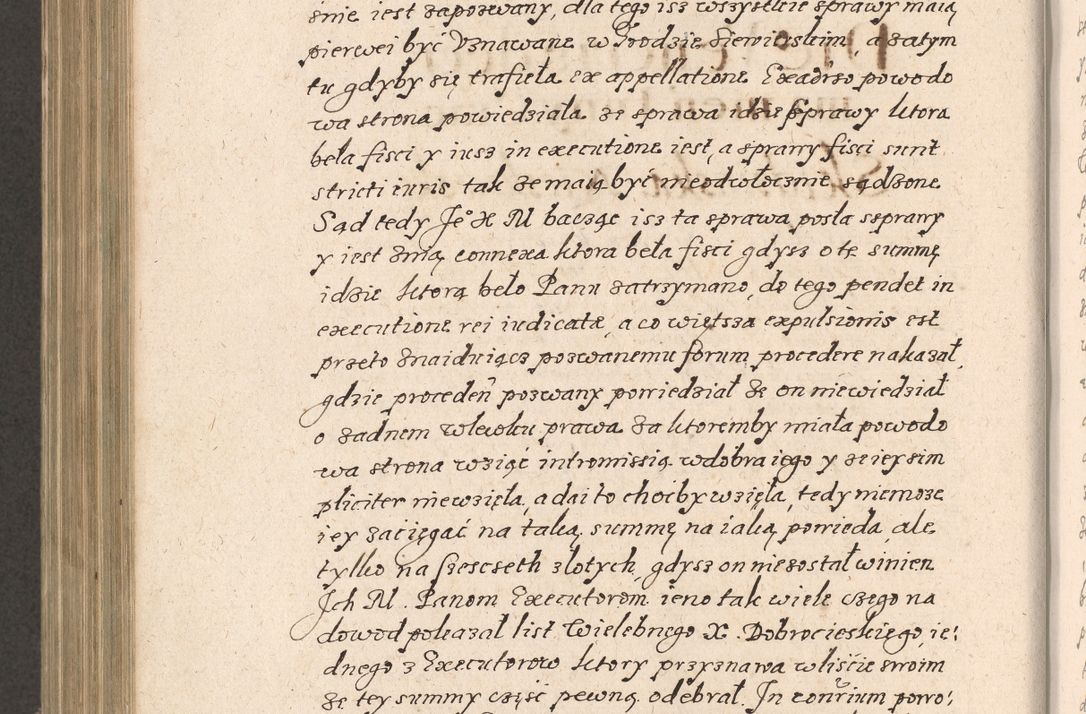 śnie iest zapozwany, dla tego isz wszystkie sprawy maią
pierwei być Vznawane w Grodzie Siewierskim, a zatym
tu gdyby się trafieła ex appellatione. Exadrso powodo
wa strona powiedziała ze sprawa idzie sprawy ktora
beła fisci y iusz in executione iest, a sprawy fisci sunt
stricti iuris tak ze maią być nieodwołocznie sądzone
Sąd tedy Je° X M bacząc isz ta sprawa posła ssprawy
y iest znią connexa ktora beła fisci gdysz o tę summę
idzie ktorą beło Panu zatrzymano, do tego pendet in
executione rei iudicatæ, a co więtsza expulsionis est
przeto znaiduiącz pozwanemu forum procedere nakazał,
gdzie proceden pozwany powiedział ze on niewiedział
o zadnem wlewku prawa za ktoremby miała powodo
wa strona wziąć intromissią wdobra iego y ze iey sim
pliciter niewzięła, a dai to choćby wzięła, tedy niemoze
iey zaciągać na taką summę na iaką powieda, ale
tylko na szescseth złotych, gdysz on niezostał winien
Ich M. Panom Executorom ieno tak wiele czego na
dowod pokazał list Wielebnego X. Dobrocieskiego, ie:
dnego z Executorow ktory przyznawa wliście swoim
ze tey summy część pewną odebrał. In conrium powo: